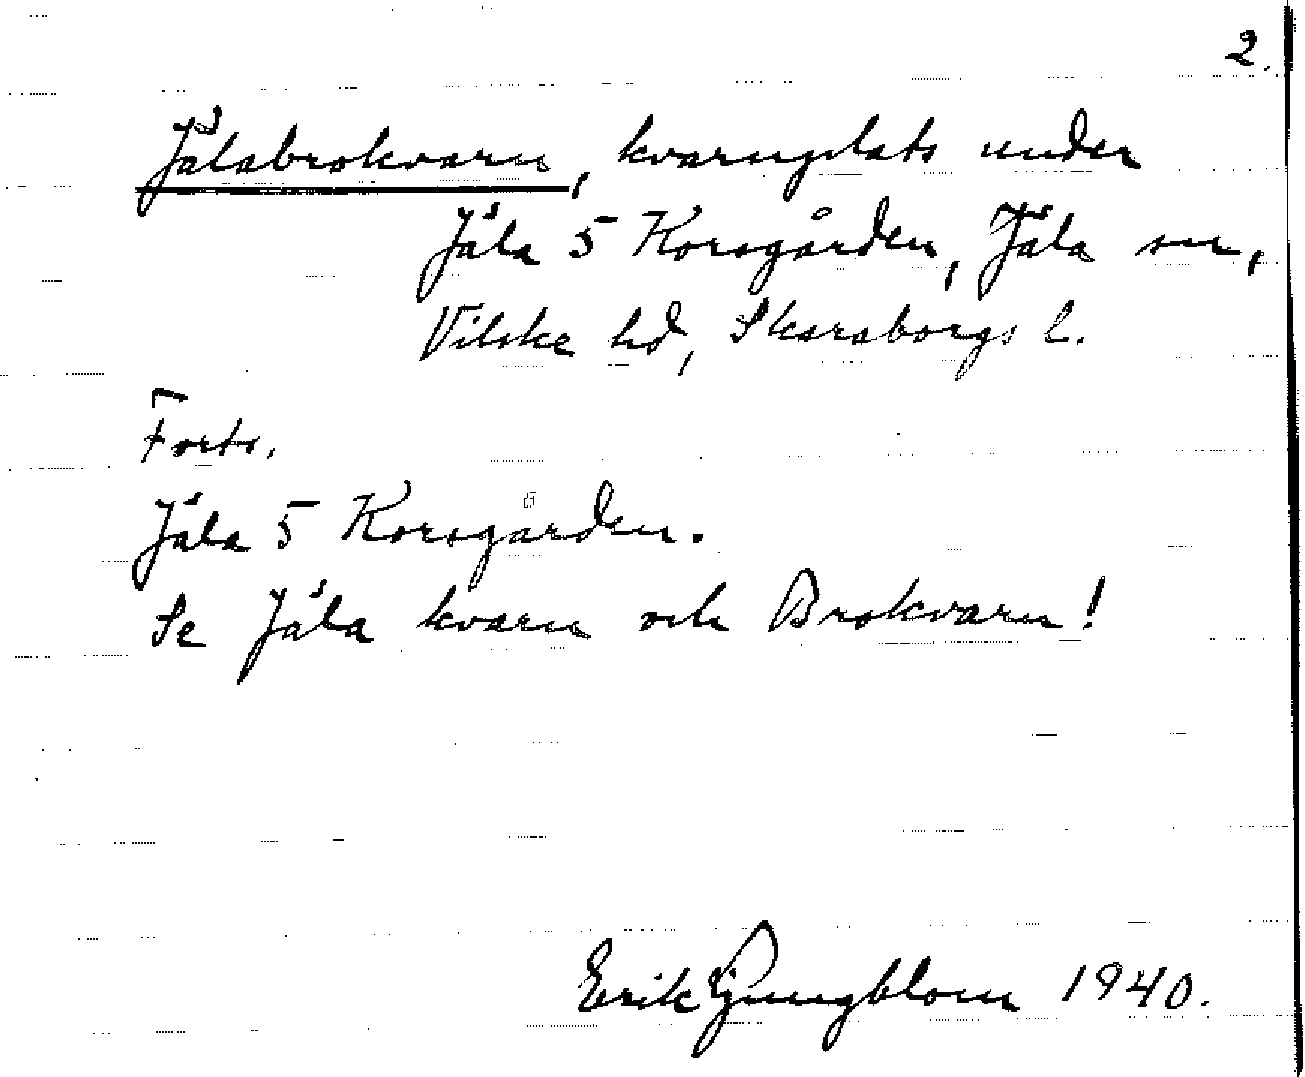 2.
Jälabrokvarn, kvarnplats under
Jäla 5 Korsgården, Jäla sn,
Vilske hd, Skaraborgs l.
Forts.
Jäla 5 Korsgården.
Se Jäla kvarn och Brokvarn!
Erik Ljungblom 1940.